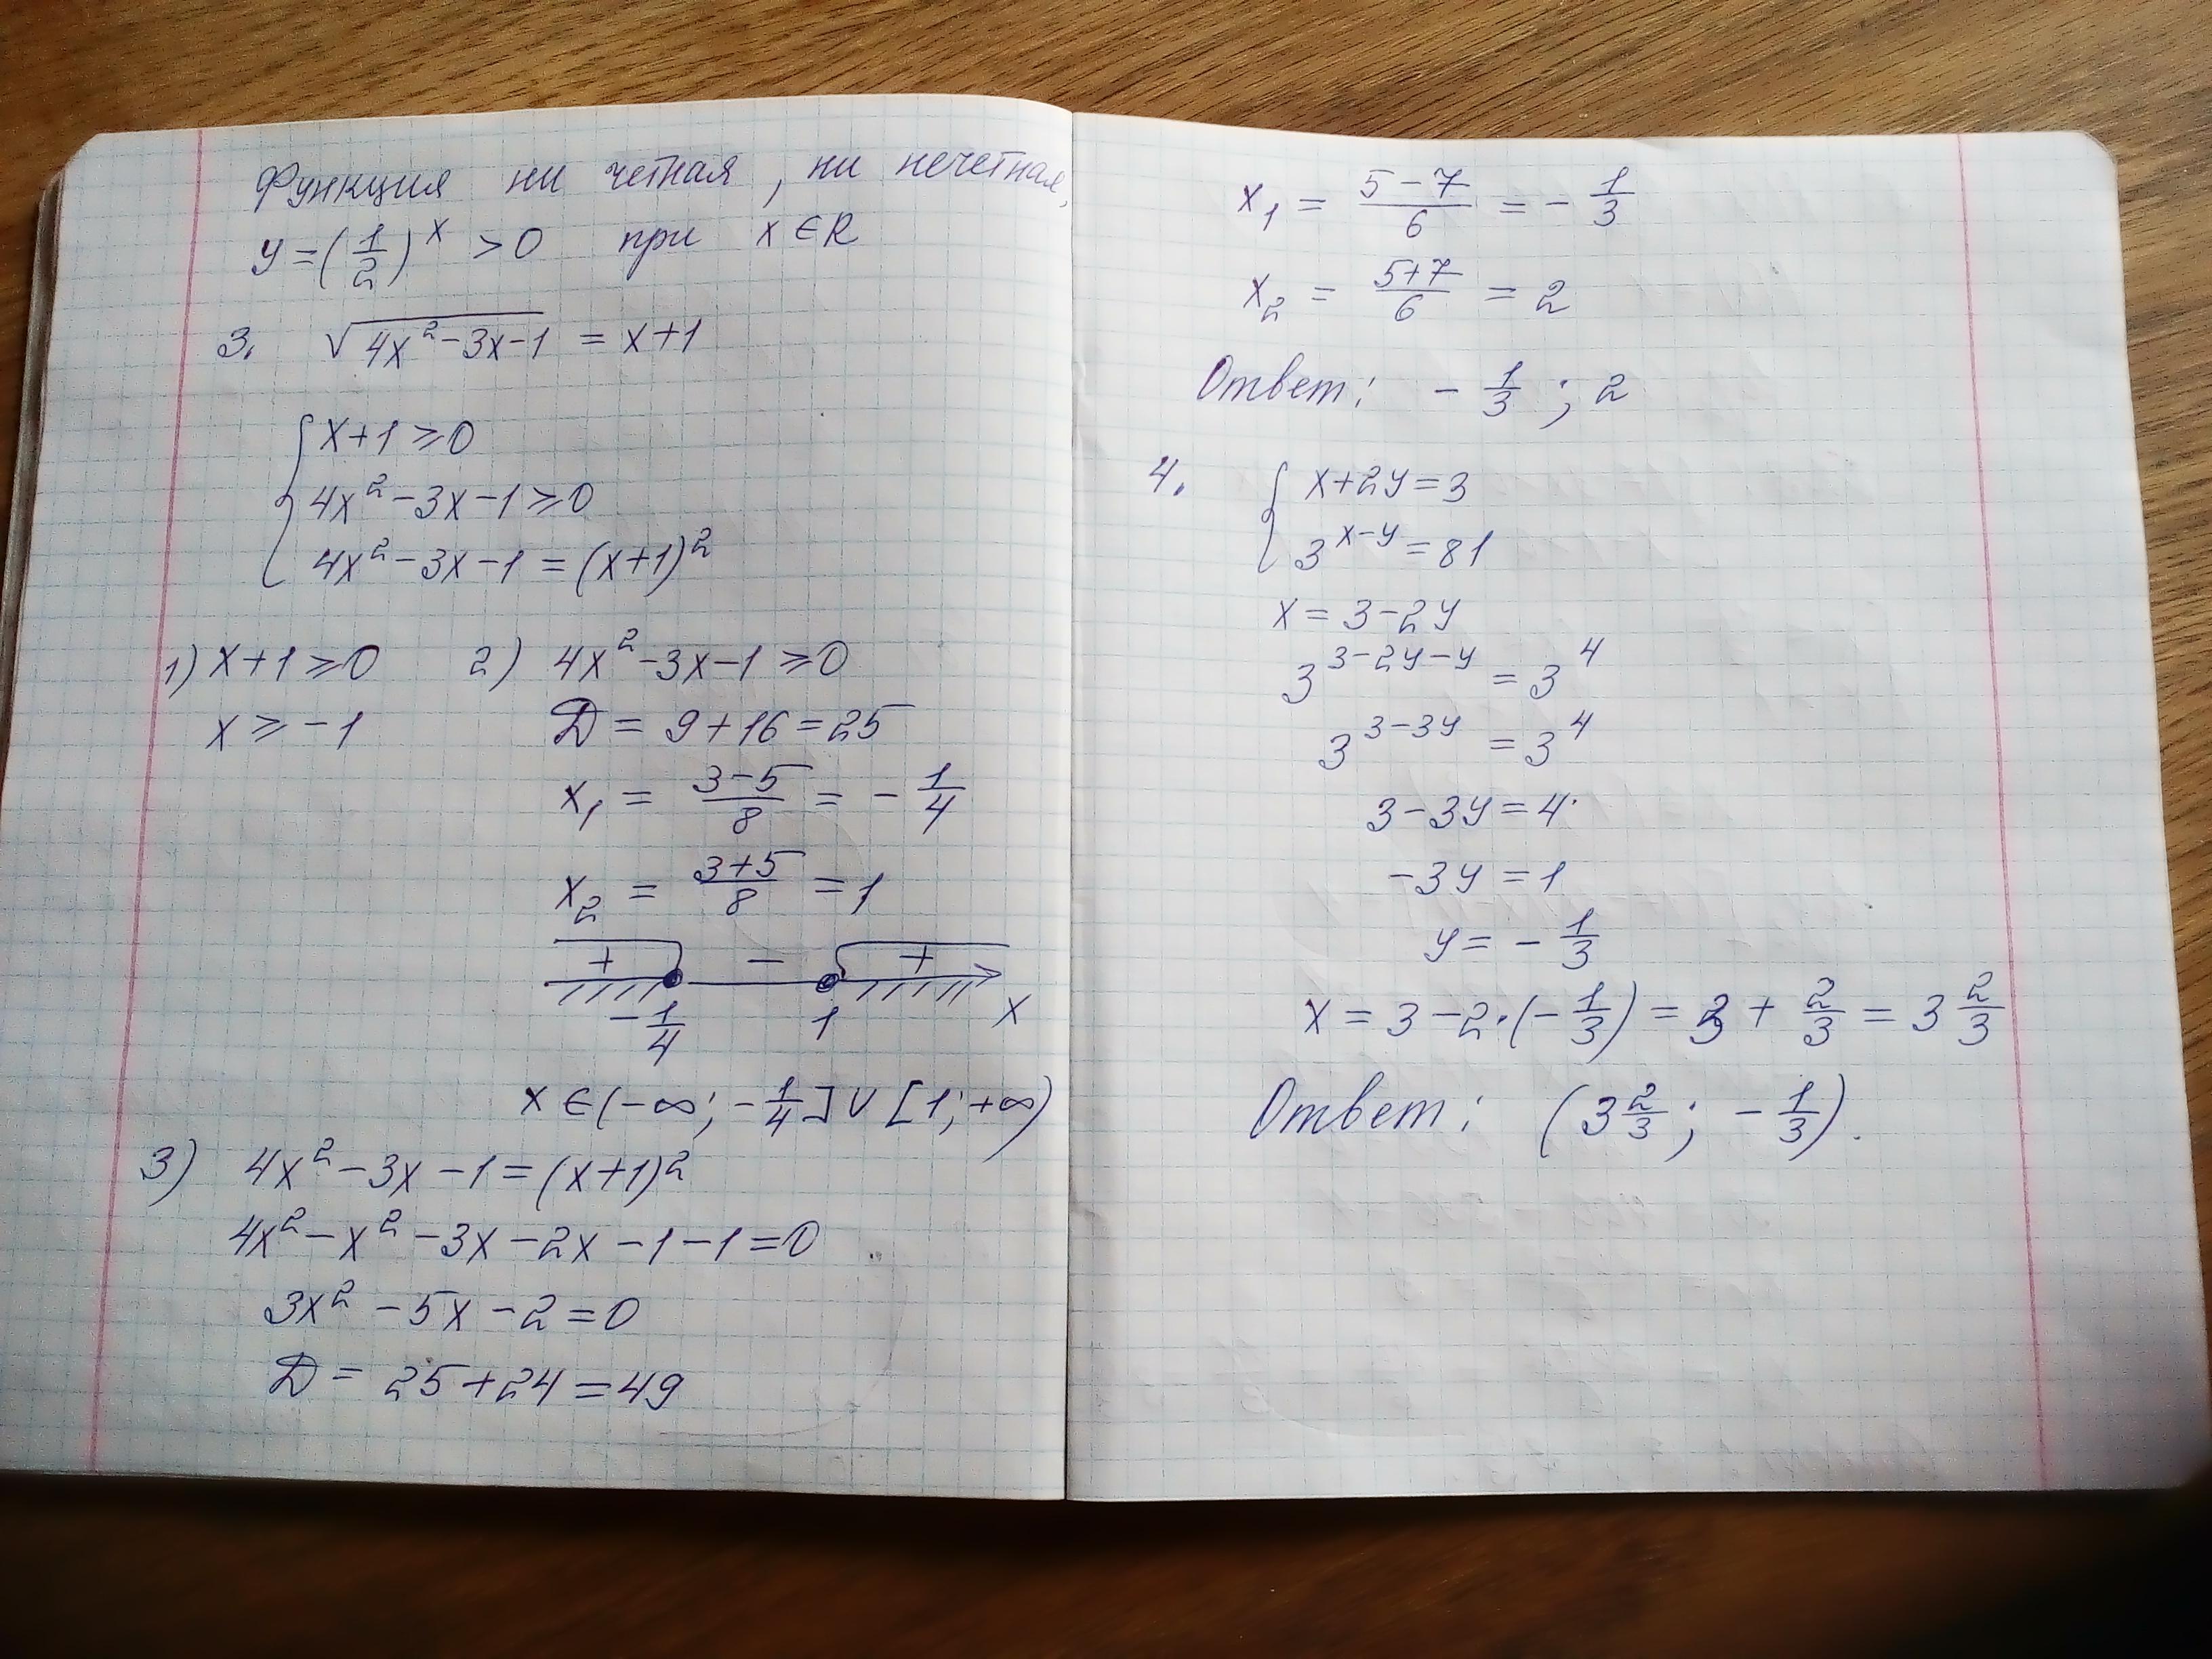 Функция ни четная, ни нечетная,
y = (1/2)^x > 0 при x ∈ R
3. √(4x² - 3x - 1) = x + 1
{ x + 1 ⩾ 0
4x² - 3x - 1 ⩾ 0
4x² - 3x - 1 = (x + 1)²
1) x + 1 ⩾ 0
x ⩾ -1
2) 4x² - 3x - 1 ⩾ 0
D = 9 + 16 = 25
x₁ = (3 - 5)/8 = - 1/4
x₂ = (3 + 5)/8 = 1
+ - +
- 1/4 1 x
x ∈ (-∞; - 1/4] ∪ [1; +∞)
3) 4x² - 3x - 1 = (x + 1)²
4x² - x² - 3x - 2x - 1 - 1 = 0
3x² - 5x - 2 = 0
D = 25 + 24 = 49
x₁ = (5 - 7)/6 = - 1/3
x₂ = (5 + 7)/6 = 2
Ответ: - 1/3 ; 2
4. { x + 2y = 3
3^(x-y) = 81
x = 3 - 2y
3^(3-2y-y) = 3^4
3^(3-3y) = 3^4
3 - 3y = 4
-3y = 1
y = - 1/3
x = 3 - 2·(- 1/3) = 3 + 2/3 = 3 2/3
Ответ: (3 2/3; - 1/3).